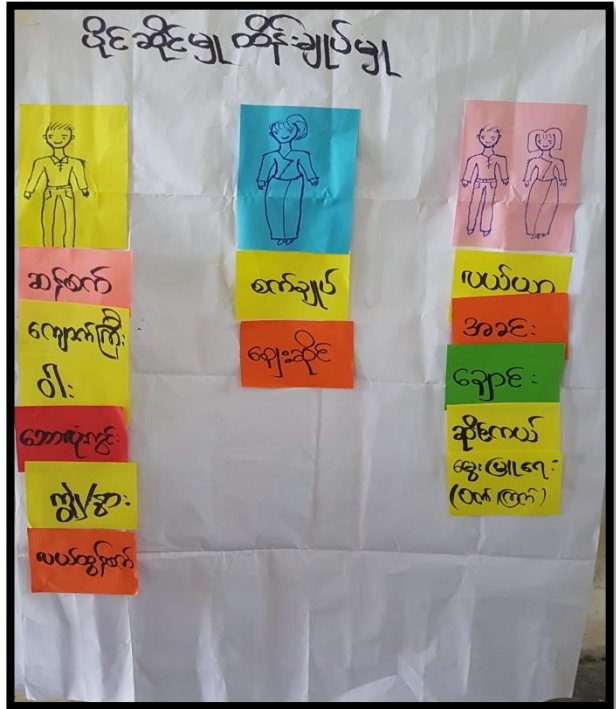 ပိုင်ဆိုင်မှု ထိန်းချုပ်မှု
ဆန်စက်
ကျောက်ကြီး
ဝါး
ဘောလုံးကွင်း
ကျွဲ/နွား
လယ်ထွန်စက်
စက်ချုပ်
ဈေးဆိုင်
လယ်ယာ
အခင်း
ချောင်း
ဆိုင်ကယ်
မွေးမြူရေး
(ဝက်၊ ကြက်)